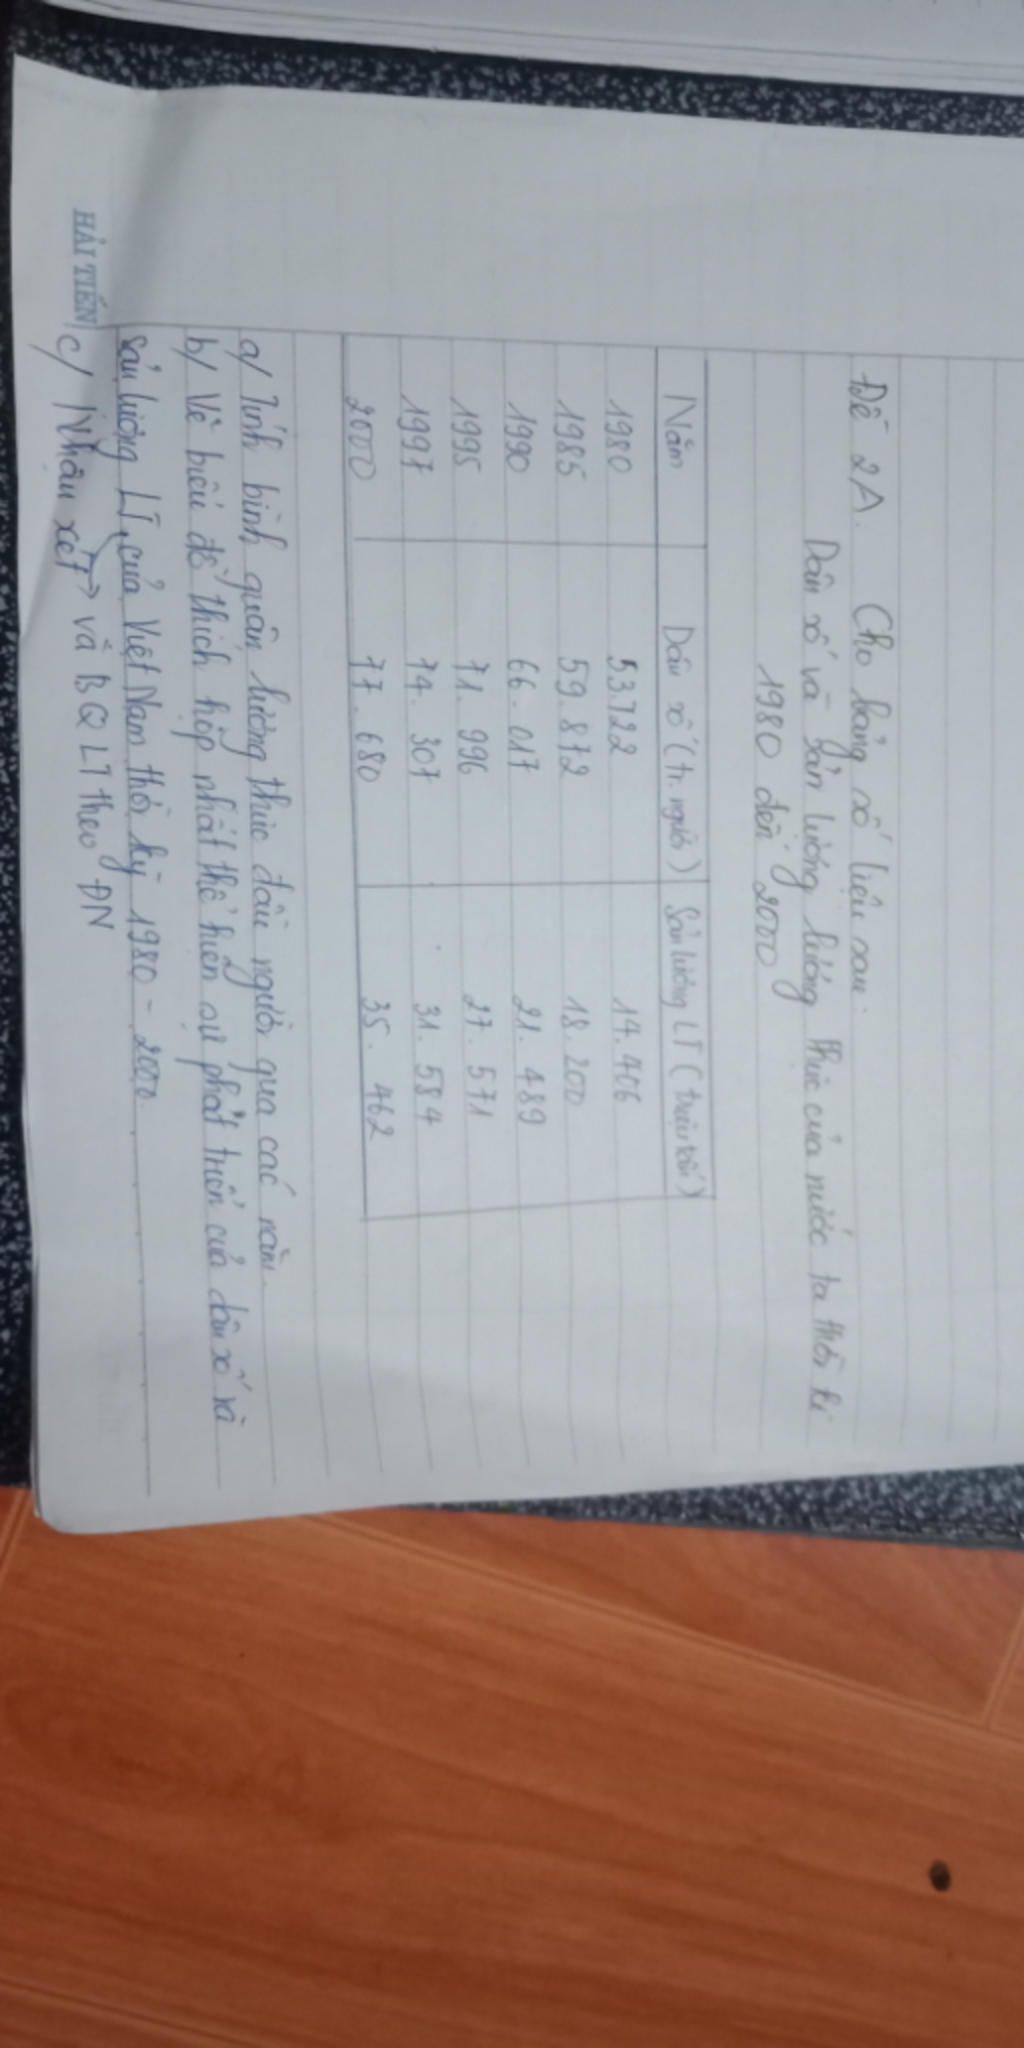 Đề 2A. Cho bảng số liệu sau:
Dân số và sản lượng lương thực của nước ta thời kì
1980 đến 2000
Năm Dân số (tr. người) Sản lượng LT (triệu tấn)
1980 53722 14.406
1985 59.872 18.200
1990 66.017 21.489
1995 71.996 27.571
1997 74.307 31.584
2000 77.680 35.462
a/ Tính bình quân lương thực đầu người qua các năm.
b/ Vẽ biểu đồ thích hợp nhất thể hiện sự phát triển của dân số và
sản lượng LT, của Việt Nam thời kỳ 1980 - 2000.
c/ Nhận xét → và BQLT theo ĐN
HẢI TIẾN